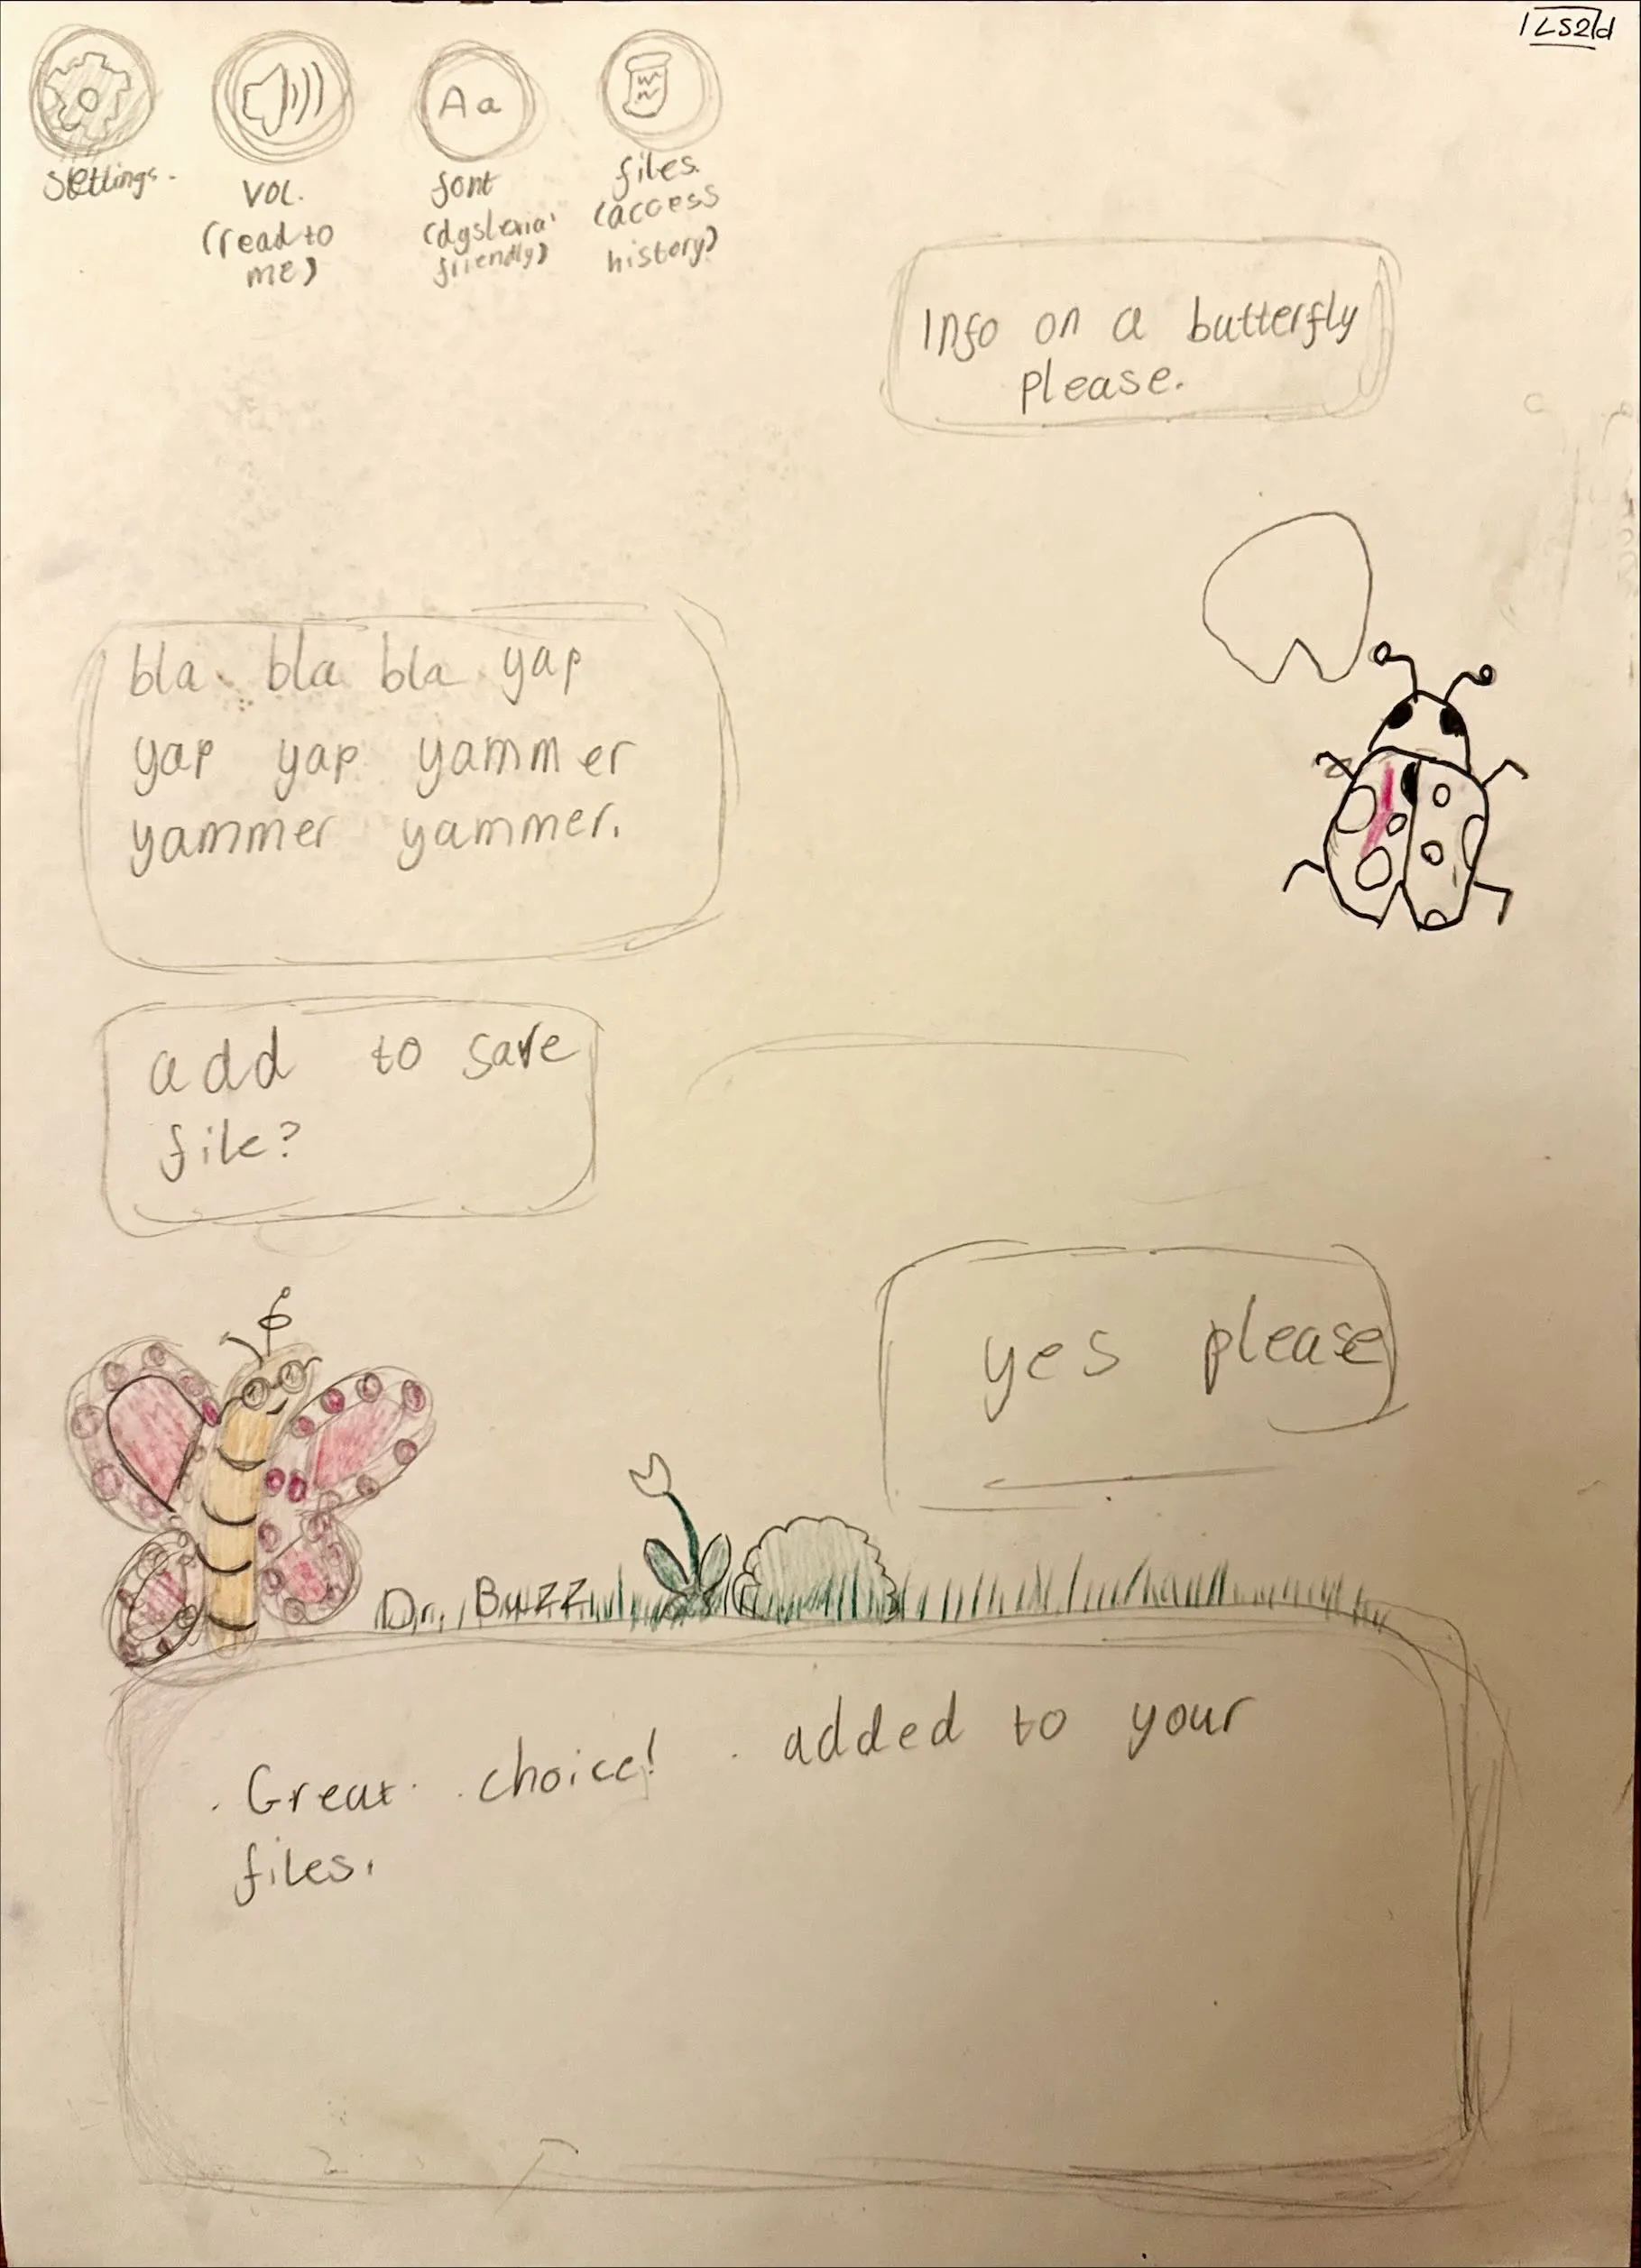 Settings.
VOL.
(read to
me)
font
(dyslexia
friendly)
files.
(access
history)
Aa
Info on a butterfly
please.
bla bla bla yap
yap yap yammer
yammer yammer.
add to save
file?
yes please
Dr. Buzz
Great choice! added to your
files.